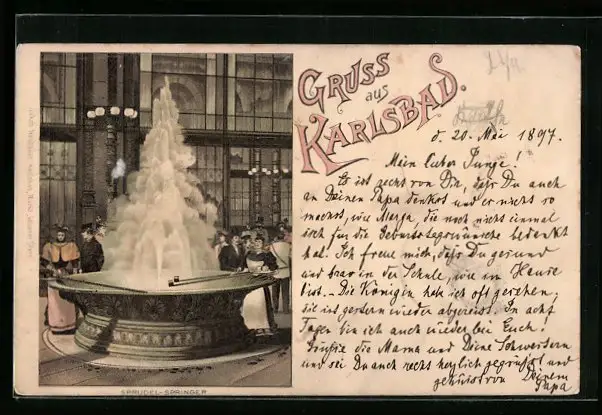 GRUSS
aus
KARLSBAD.
d. 20. Mai 1897.
Mein lieber Junge!
Es ist recht von Dir, daß Du auch
an Deinen Papa denkst und es nicht so
machst, wie Marga, die noch nicht einmal
sich für die Geburtstagswünsche bedankt
hat. Ich freue mich, daß Du gesund
und brav in der Schule, wie im Hause
bist. – Die Königin hab ich oft gesehen;
sie ist gestern wieder abgereist. In acht
Tagen bin ich auch wieder bei Euch!
Grüße die Mama und Deine Schwestern
und sei Du auch recht herzlich gegrüßt und
geküsst von Deinem
Papa
SPRUDEL-SPRINGER